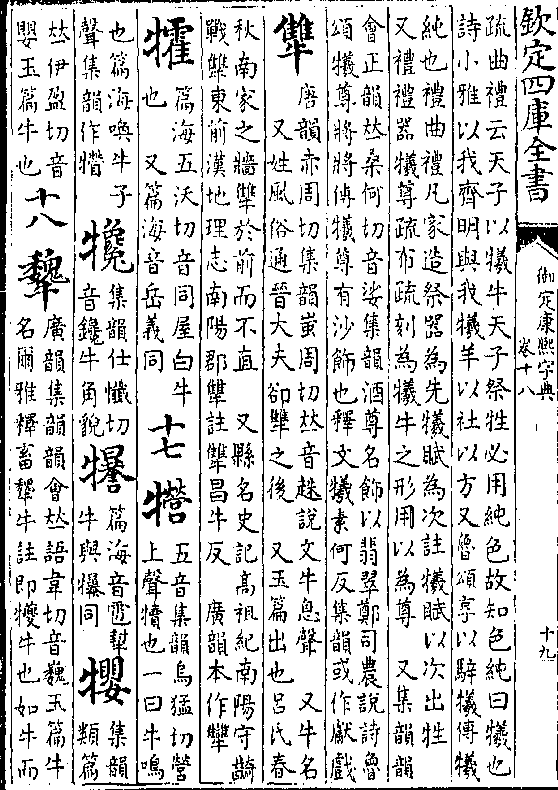 欽定四庫全書
御定康熙字典
卷十八
十九
疏曲禮云天子以犧牛天子祭牲必用純色故知色純曰犧也
詩小雅以我齊明與我犧羊以社以方又魯頌享以騂犧傳犧
純也禮曲禮凡家造祭器為先犧賦為次註犧賦以次出牲
又禮禮器犧尊疏布疏刻為犧牛之形用以為尊 又集韻韻
會正韻𠀤桑何切音娑集韻酒尊名飾以翡翠鄭司農說詩魯
頌犧尊將將傳犧尊有沙飾也釋文犧素何反集韻或作獻戲
犨
唐韻赤周切集韻蚩周切𠀤音𧻚說文牛息聲 又牛名
又姓風俗通晉大夫卻犨之後 又玉篇出也呂氏春
秋南家之牆犨於前而不直 又縣名史記高祖紀南陽守齮
戰犨東前漢地理志南陽郡犨註犨昌牛反 廣韻本作犫
㸌
篇海五沃切音同屋白牛
也 又篇海音岳義同
十七
㹚
五音集韻烏猛切營
上聲㹑也一曰牛鳴
也篇海喚牛子
聲集韻作㹙
㹌
集韻仕懺切
音鑱牛角貌
犦
篇海音雹犎
牛與犦同
㹘
集韻
類篇
𠀤伊盈切音
嬰玉篇牛也
十八
犩
廣韻集韻韻會𠀤語韋切音巍玉篇牛
名爾雅釋畜犩牛註即犪牛也如牛而